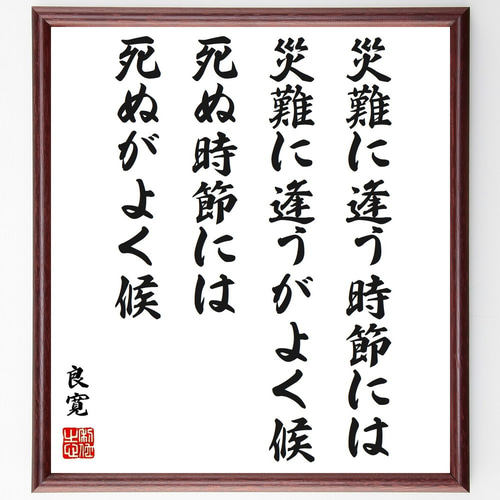 災難に逢う時節には
災難に逢うがよく候
死ぬ時節には
死ぬがよく候
良寛